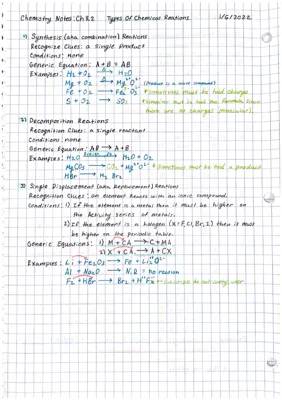 Chemistry Notes: Ch 8.2 Types Of Chemical Reactions 1/6/2022
1) Synthesis (aka combination) Reactions
Recognize Clues: a single Product
Conditions: none
Generic Equation: A + B = AB
Examples: H₂ + O₂ → H₂O
Mg + O₂ → Mg²⁺O²⁻ (Product is a ionic compound)
Fe + O₂ → Fe₂O₃ * Sometimes must be had charges
S + O₂ → SO₂ * Sometimes must be had the formula
are no charges (molecular).
2) Decomposition Reactions
Recognition Clues: a single reactant
Conditions: none
Generic Equation: AB → A + B
Examples: H₂O → H₂O + O₂
MgCO₃ → CO₂ + Mg²⁺O²⁻ * Sometimes must be had a product
HBr → H₂ Br₂
3) Single Displacement (aka Replacement) Reactions
Recognition Clues: an element reacts with an ionic compound.
Conditions: 1) If the element is a metal then it must be higher on
the Activity series of metals.
2) If the element is a halogen (X: F, Cl, Br, I) then it must
be higher on the periodic table.
Generic Equations: 1) M + CA → C + MA
2) X + CA → A + CX
Examples: Li + Fe₂O₃ → Fe + Li₂O
Al + Na₂O → N.R = no reaction
F₂ + HBr → Br₂ + H⁺F⁻